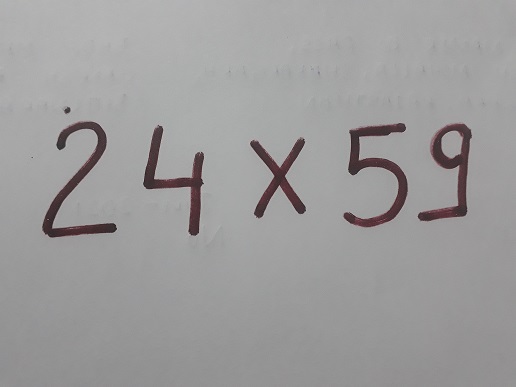 24 x 59